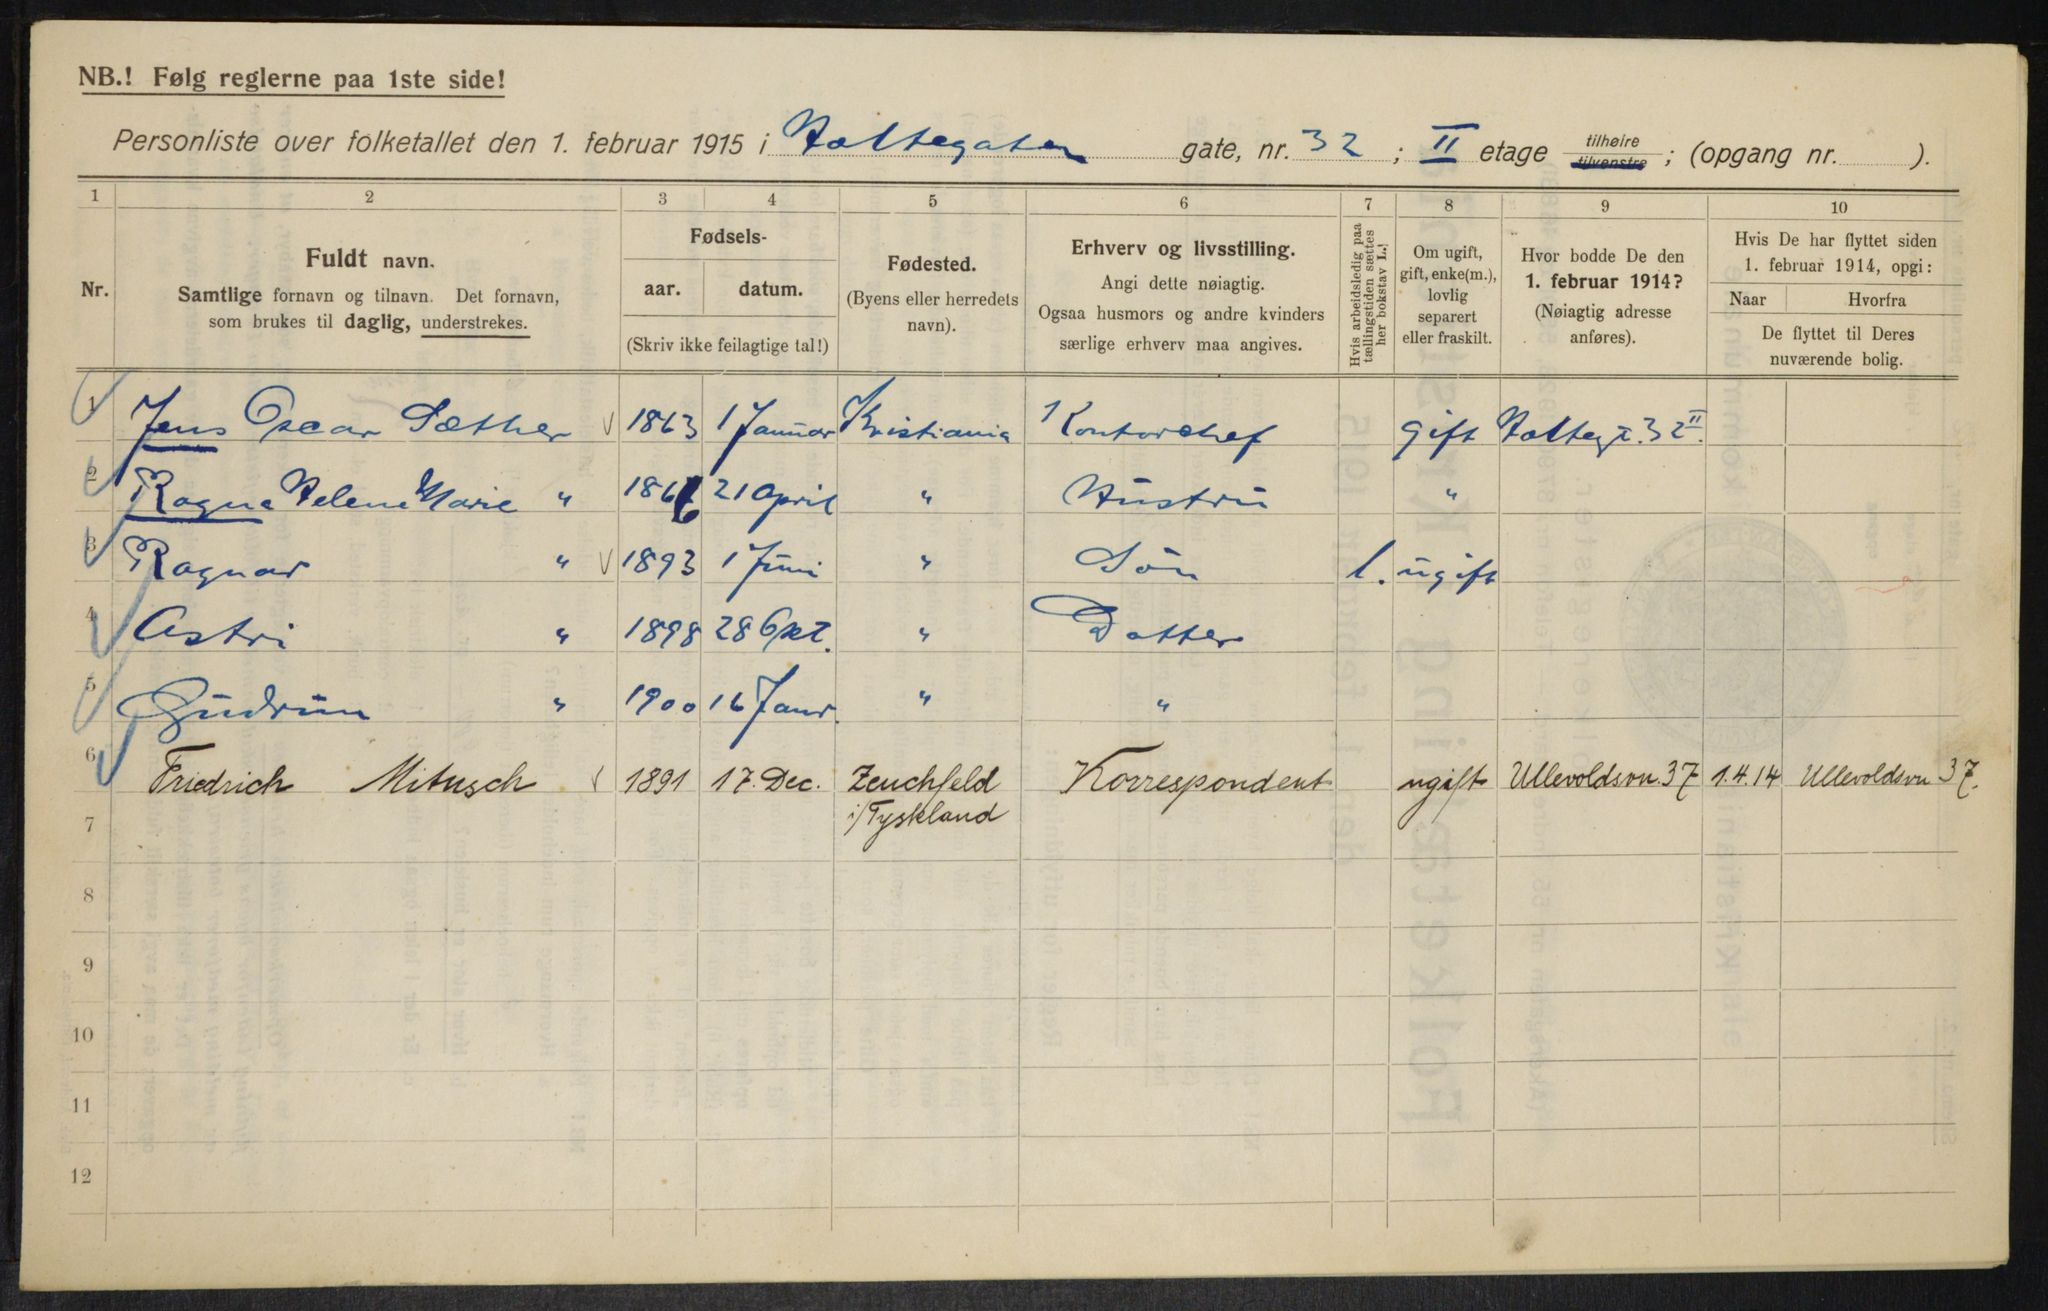 NB.! Følg reglerne paa 1ste side!
Personliste over folketallet den 1. februar 1915 i Holtegaten gate, nr. 32 ; II etage tilhøire tilvenstre ; (opgang nr. ).
1 2 3 4 5 6 7 8 9 10
Nr.
Fuldt navn.
Samtlige fornavn og tilnavn. Det fornavn,
som brukes til daglig, understrekes.
Fødsels-
aar. datum.
(Skriv ikke feilagtige tal!)
Fødested.
(Byens eller herredets
navn).
Erhverv og livsstilling.
Angi dette nøiagtig.
Ogsaa husmors og andre kvinders
særlige erhverv maa angives.
Hvis arbeidsledig paa
tællingstiden sættes
her bokstav L.!
Om ugift,
gift, enke(m.),
lovlig
separert
eller fraskilt.
Hvor bodde De den
1. februar 1914?
(Nøiagtig adresse
anføres).
Hvis De har flyttet siden
1. februar 1914, opgi:
Naar Hvorfra
De flyttet til Deres
nuværende bolig.
1 Jens Oscar Sæther 1863 1 Januar Kristiania Kontorchef gift Holtegt. 32 II.
2 Ragna Helene Marie " 1866 21 April " Hustru "
3 Ragnar " 1893 1 Juni " Søn l. ugift
4 Astri " 1898 28 Okt. " Datter
5 Gudrun " 1900 16 Janr. " "
6 Friedrich Mitusch 1891 17. Dec. Zeuchfeld Korrespondent ugift Ullevoldsvn. 37 1.4.14 Ullevoldsvn 37.
i/Tyskland
7
8
9
10
11
12